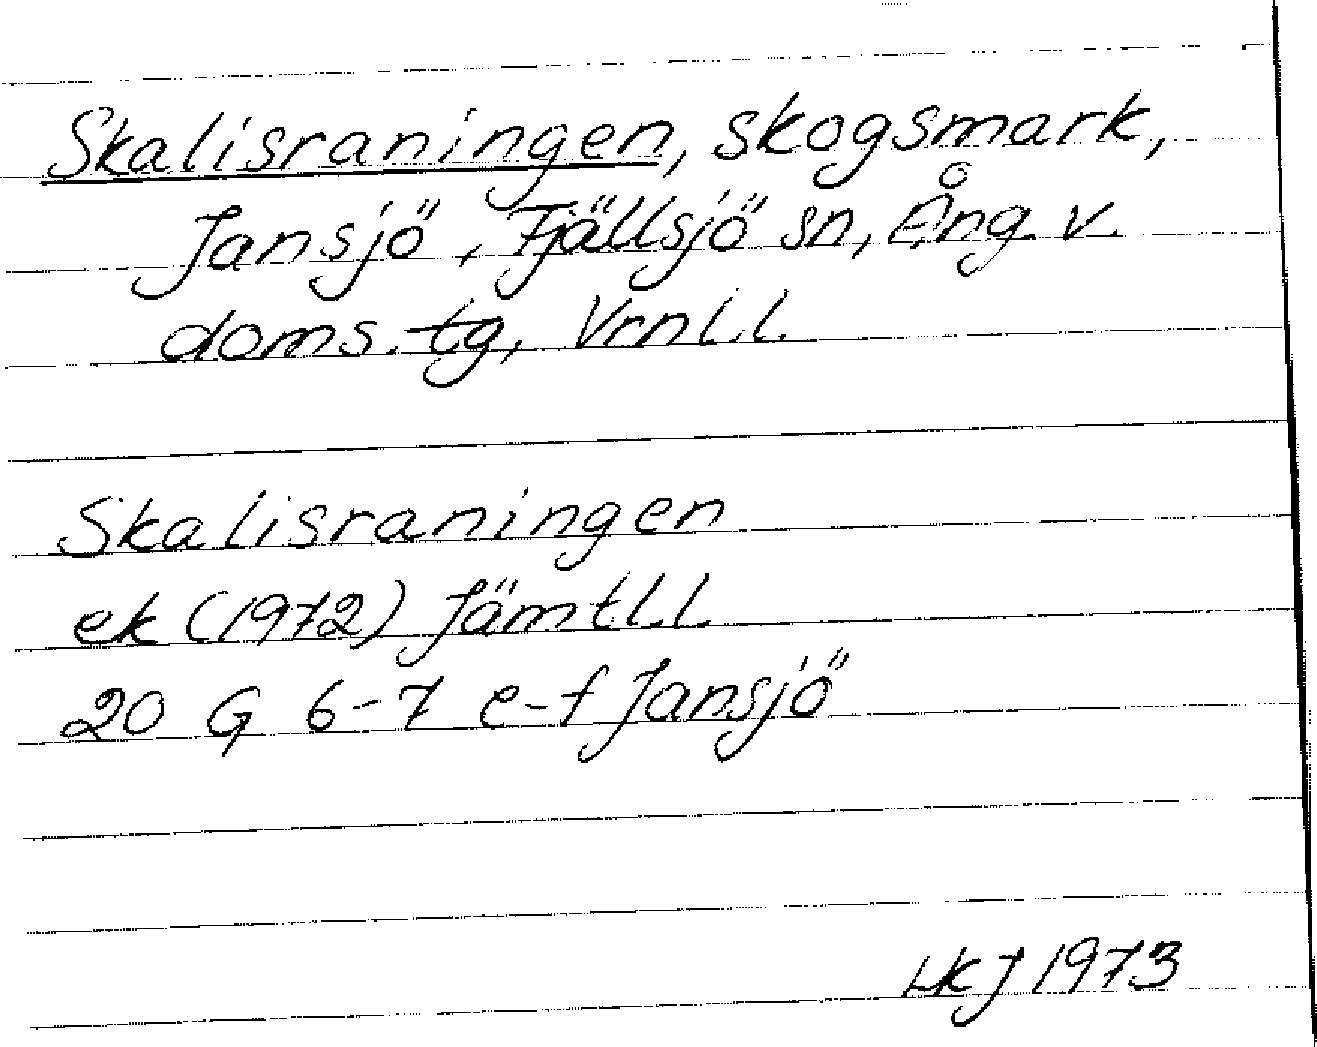 Skalisraningen, skogsmark,
Jansjö, Fjällsjö sn, Ång. v.
doms. tg, Vrnl.l.
Skalisraningen
ek (1972) Jämtl.l.
20 G 6-7 e-f Jansjö
HKJ 1973